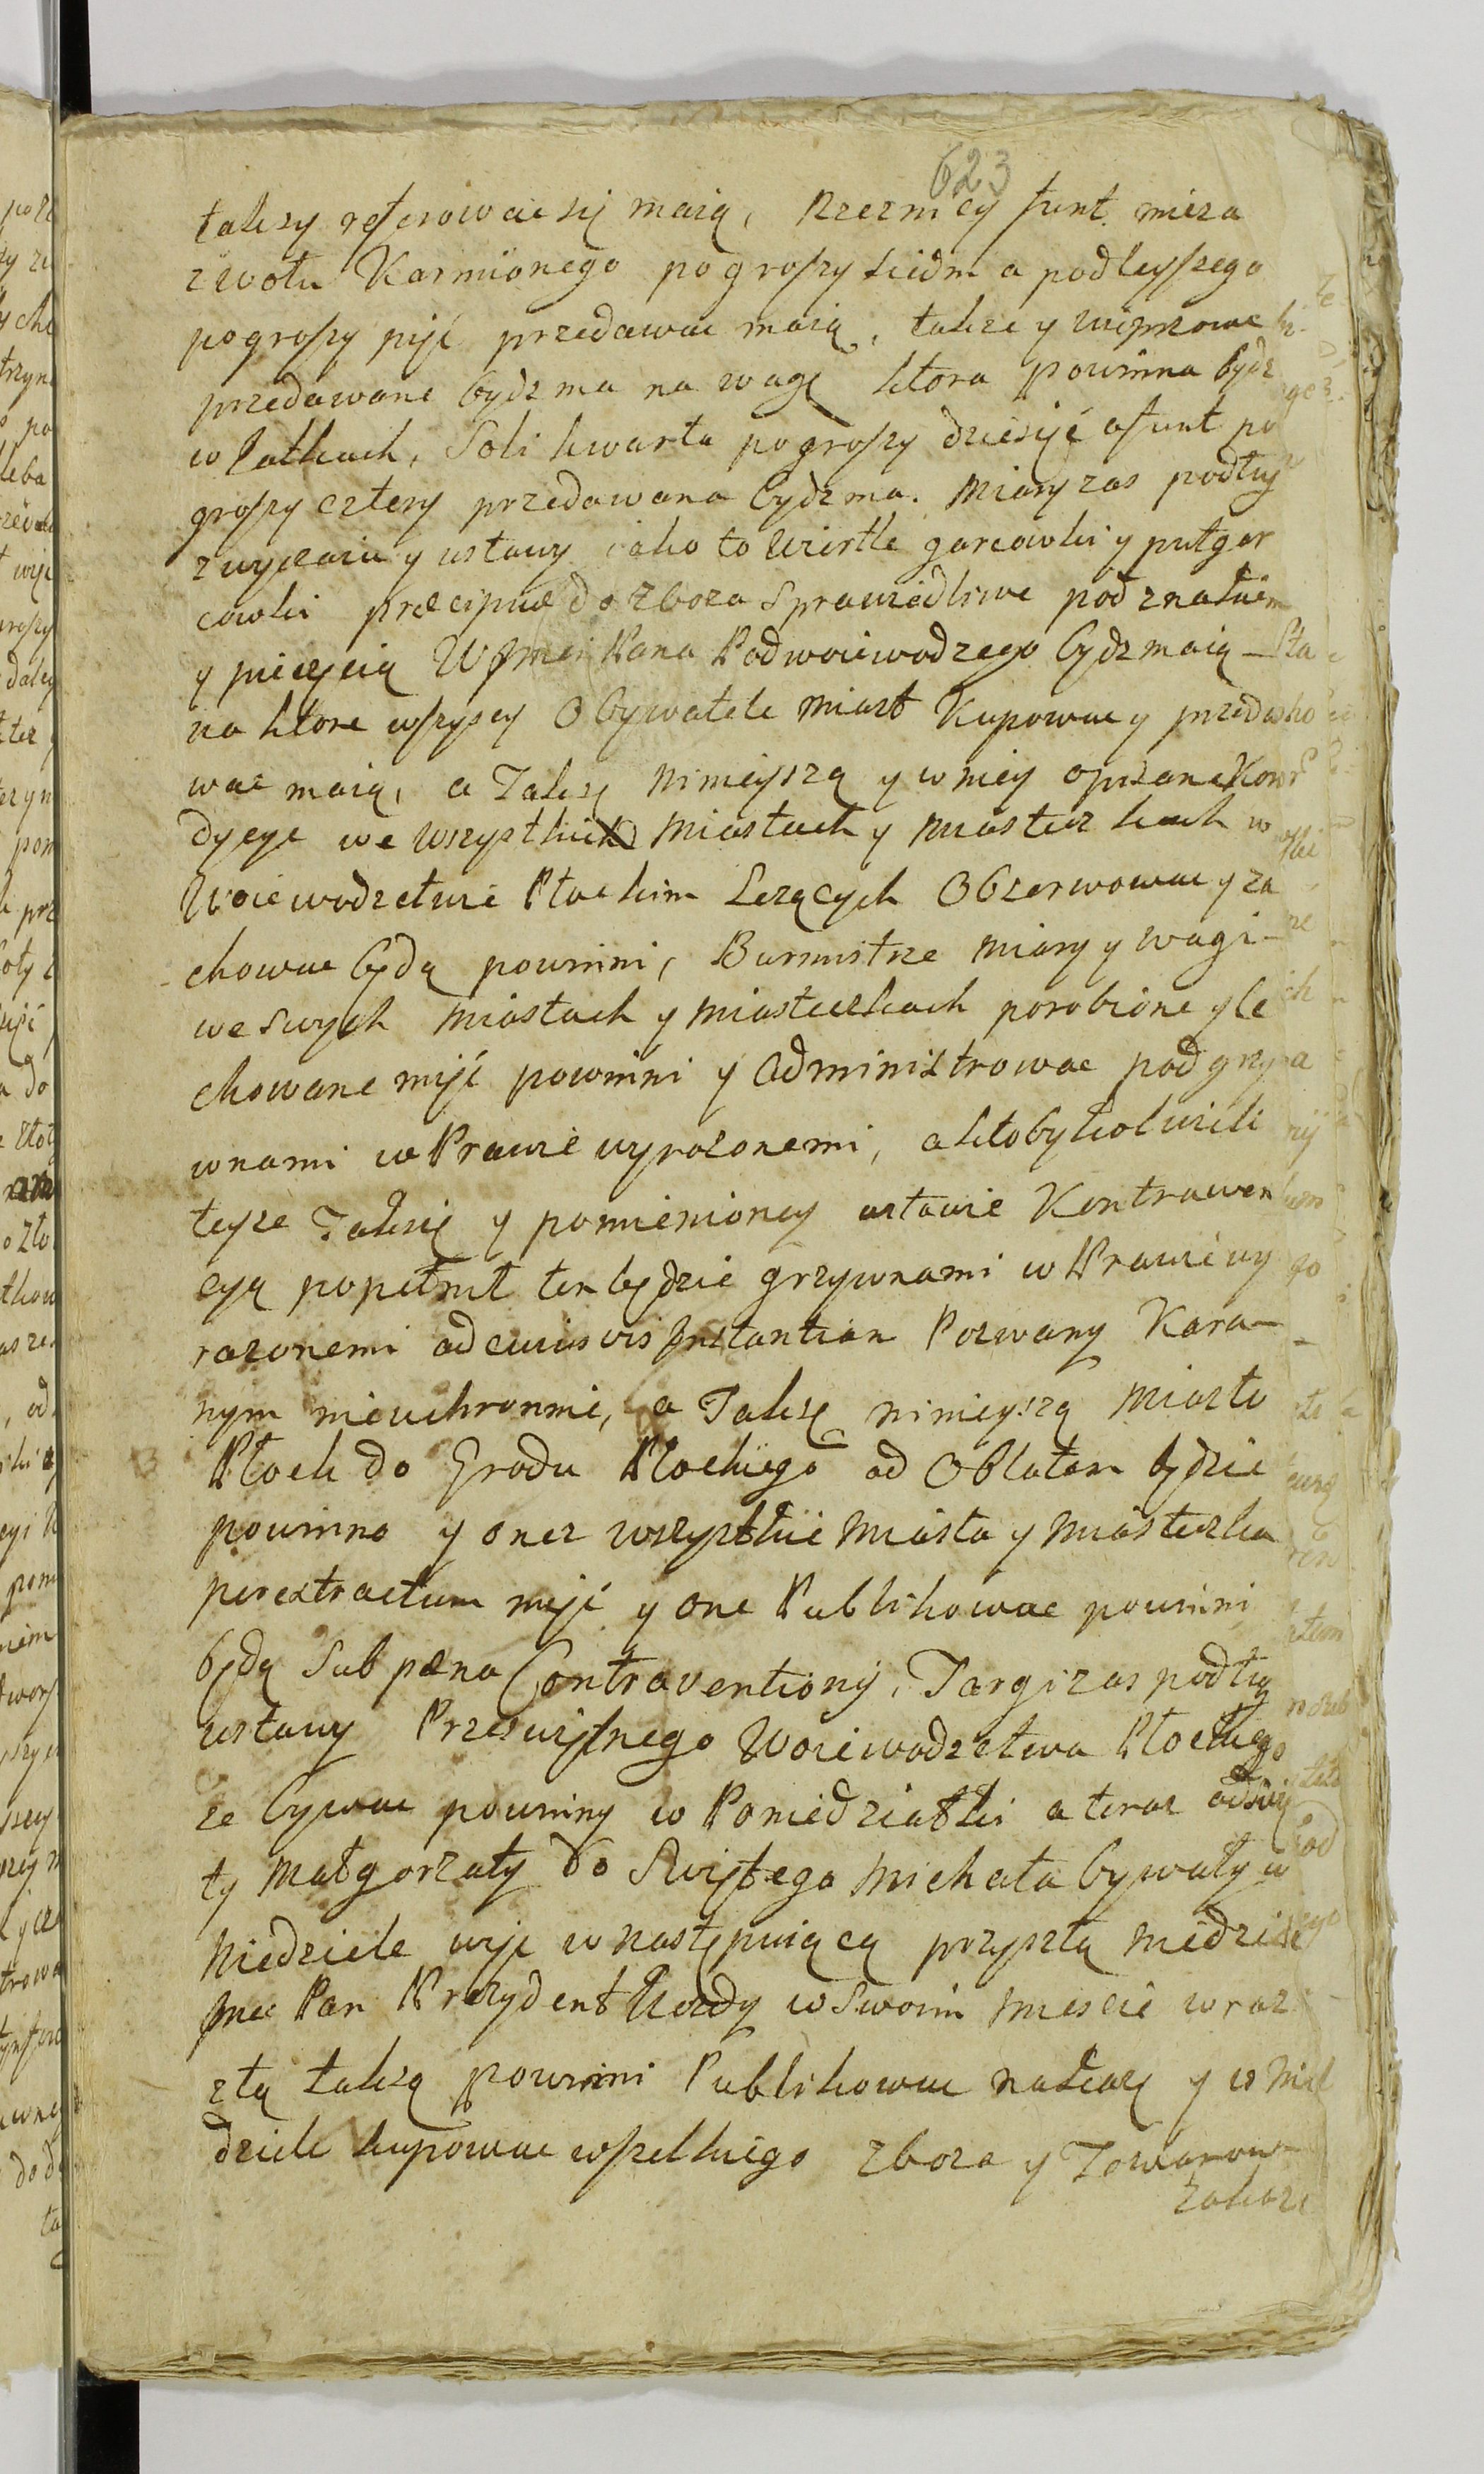 623
taksy referować się maią, Rzeznicy funt mięsa
z wołu Karmionego po groszy siedm a podleyszego
po groszy pięć przedawac maią, takze y wieprzowe
przedawane bydz ma na wagę ktora powinna bydz
w Jatkach, Soli kwarta po groszy dziesięć a funt po
groszy cztery przedawana bydz ma. Miary zas podług
zwyczaiu y ustawy iako to wiertle garcowki y pułgar
cowki præcipuè do zboza sprawiedliwe pod znakiem
y pieczęcią WJmci Pana Podwoiewodzego bydz maią
na ktore wszyscy Obywatele miast Kupowac y przeda
wac maią, a Taksę ninieyszą y w niey opisane Kon
dycye we wszystkich Miastach y Miasteczkach w
Woiewodztwie Płockim Lezących Obserwowac y za
chowac będą powinni, Burmistrze miary y wagi
we swych Miastach y Miasteczkach porobione y
chowane mieć powinni y Administrowac pod grzy
wnami w Prawie wyrazonemi, a ktobykolwiek
teyze Taksie y pomienioney ustawie Kontrawen
cyą popełnił ten będzie grzywnami w Prawie wy
razonemi ad cuiusvis Instantiam Pozwany Kara
nym nieuchronnie, a Taksę ninieyszą Miasto
Płock do Grodu Płockiego ad Oblatam będzie
powinno y onez wszystkie Miasta y Miasteczka
per extractum mieć y one Publikowac powinni
będą Sub pæna Contraventionis. Targi zas podług
ustawy Przeswietnego Woiewodztwa Płockiego
ze bywac powinny w Poniedziałki a teraz od Swię
ty Małgorzaty do Swiętego Michała bywały w
Niedziele więc w następuiącą przyszłą niedziele
Jmc Pan Prezydent Kazdy w Swoim Miescie wraz
z tą taksą powinni Publikowac nakazę y w Nie
dziele kupowac wszelkiego zboza y Towarow
zakaze